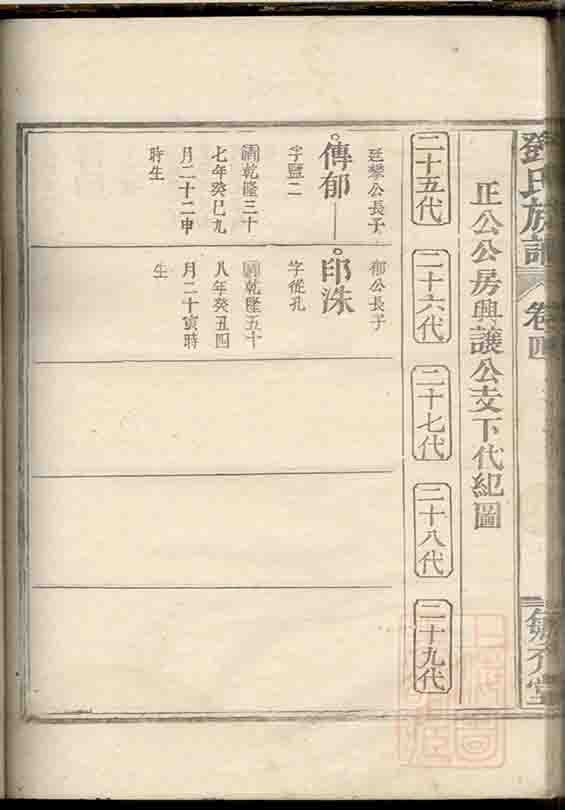 鄧氏族譜
卷四
正公公房興讓公支下代紀圖
二十五代
二十六代
二十七代
二十八代
二十九代
廷攀公長子
傳郁
字監二
乾隆三十
七年癸巳九
月二十二申
時生
郁公長子
印洙
字從孔
乾隆五十
八年癸丑四
月二十寅時
生